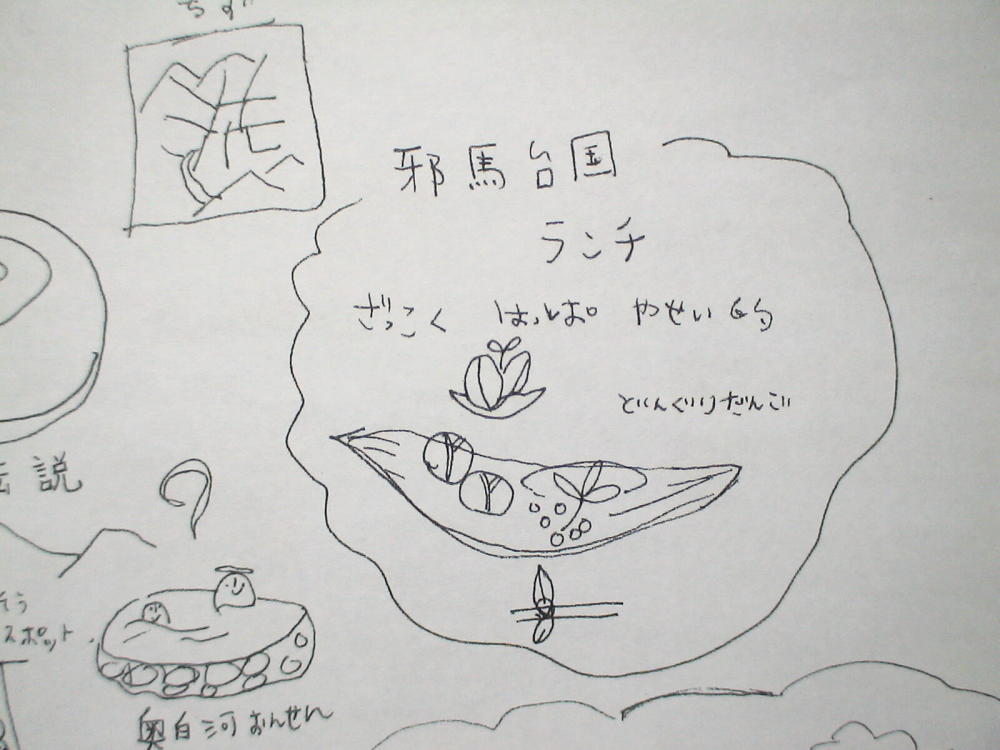 ちず
邪馬台国
ランチ
ざっこく はっぱ やせい的
どんぐりだんご
伝説
そう
スポット
奥白河おんせん